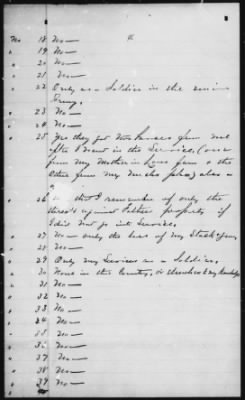 No 18 No—
" 19 No—
" 20 No—
" 21 No—
" 22 Only as a Soldier in the union
Army.
" 23 No—
" 24 No—
" 25 Yes they got two horses from me
after I was in the Service, (one
from my Mother in Laws farm & the
other from my Uncles place) also
" 26 that I remember of only the
threats against Father property if
I did not go into Service.
" 27 No— only the loss of my Stock
" 28 No—
" 29 Only my Services as a Soldier.
" 30 None in this County, or elsewhere to my knowledge
" 31 No—
" 32 No—
" 33 No—
" 34 No—
" 35 No—
" 36 No—
" 37 No—
" 38 No—
" 39 No—